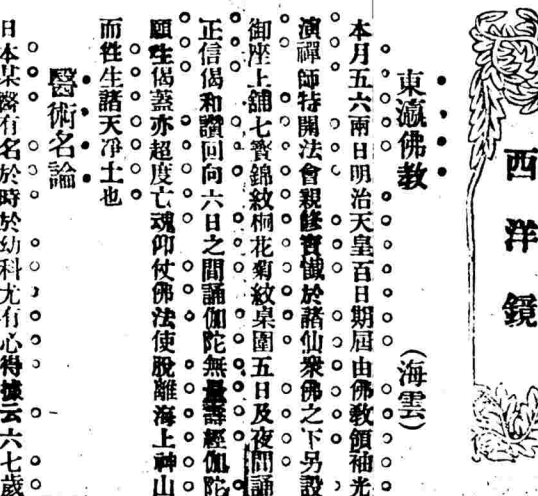 西洋鏡
東瀛佛教
(海雲)
本月五六兩日明治天皇百日期屆由佛教領袖光
演禪師特開法會親修寶懺於諸仙衆佛之下另設
御座上舖七寳錦紋桐花菊紋桌圍五日及夜間誦
正信偈和讚回向六日之間誦伽陀無量壽經伽陀
願生偈蓋亦超度亡魂仰仗佛法使脫離海上神山
而徃生諸天凈土也
醫術名論
日本某醫有名於時於幼科尤有心得據云六七歲